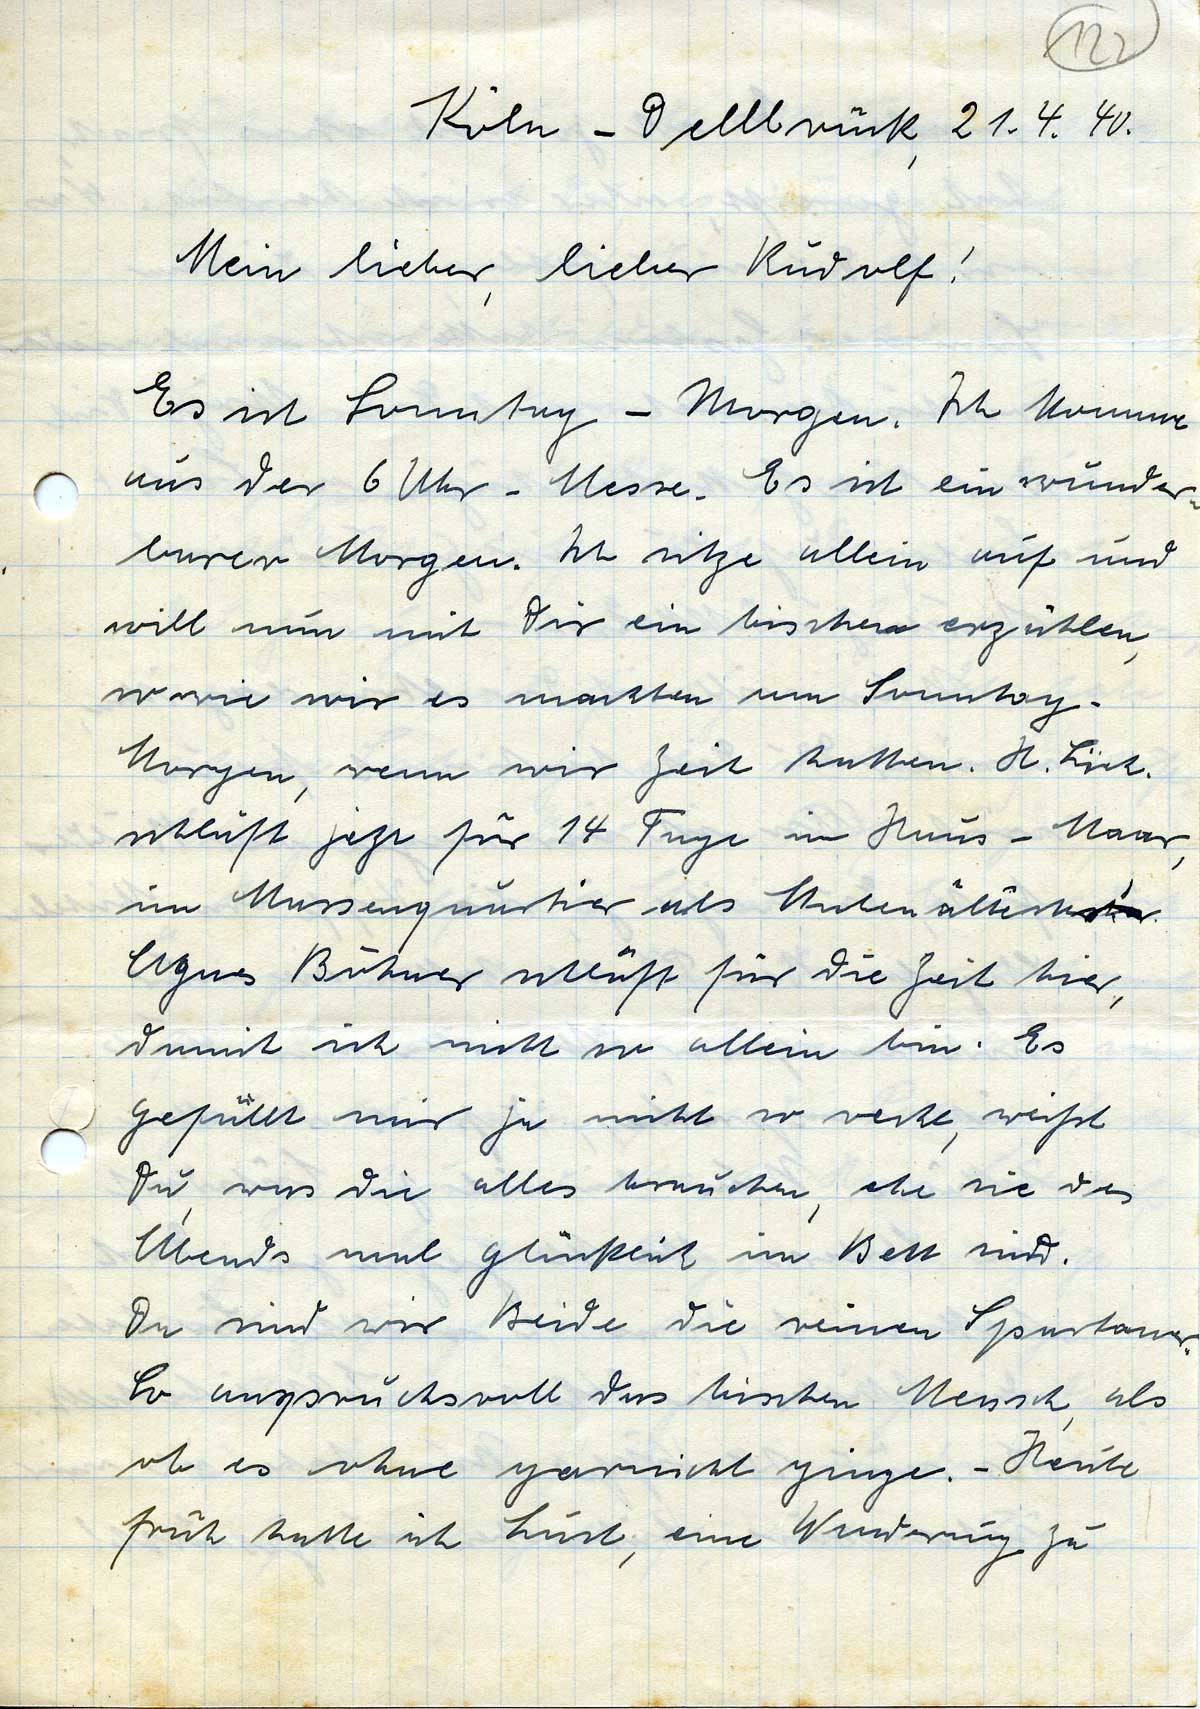 122
Köln - Dellbrück, 21.4.40.
Mein lieber, lieber Rudolf!
Es ist Sonntag - Morgen. Ich komme
aus der 6 Uhr - Messe. Es ist ein wunder-
barer Morgen. Ich sitze allein auf und
will nun mit Dir ein bischen erzählen,
so wie wir es machten am Sonntag-
Morgen, wenn wir Zeit hatten. H.
schläft jetzt für 14 Tage in Haus - Maar,
im Massenquartier als Stubenälteste
Agnes Böhner schläft für die Zeit hier,
damit ich nicht so allein bin. Es
gefällt mir ja nicht so recht, weißt
Du, was die alles brauchen, ehe sie des
Abends mal glücklich im Bett sind.
Da sind wir Beide die reinen Spartaner.
So anspruchsvoll das bischen Mensch, als
ob es ohne garnicht ginge. - Heute
früh hatte ich Lust, eine Wanderung zu